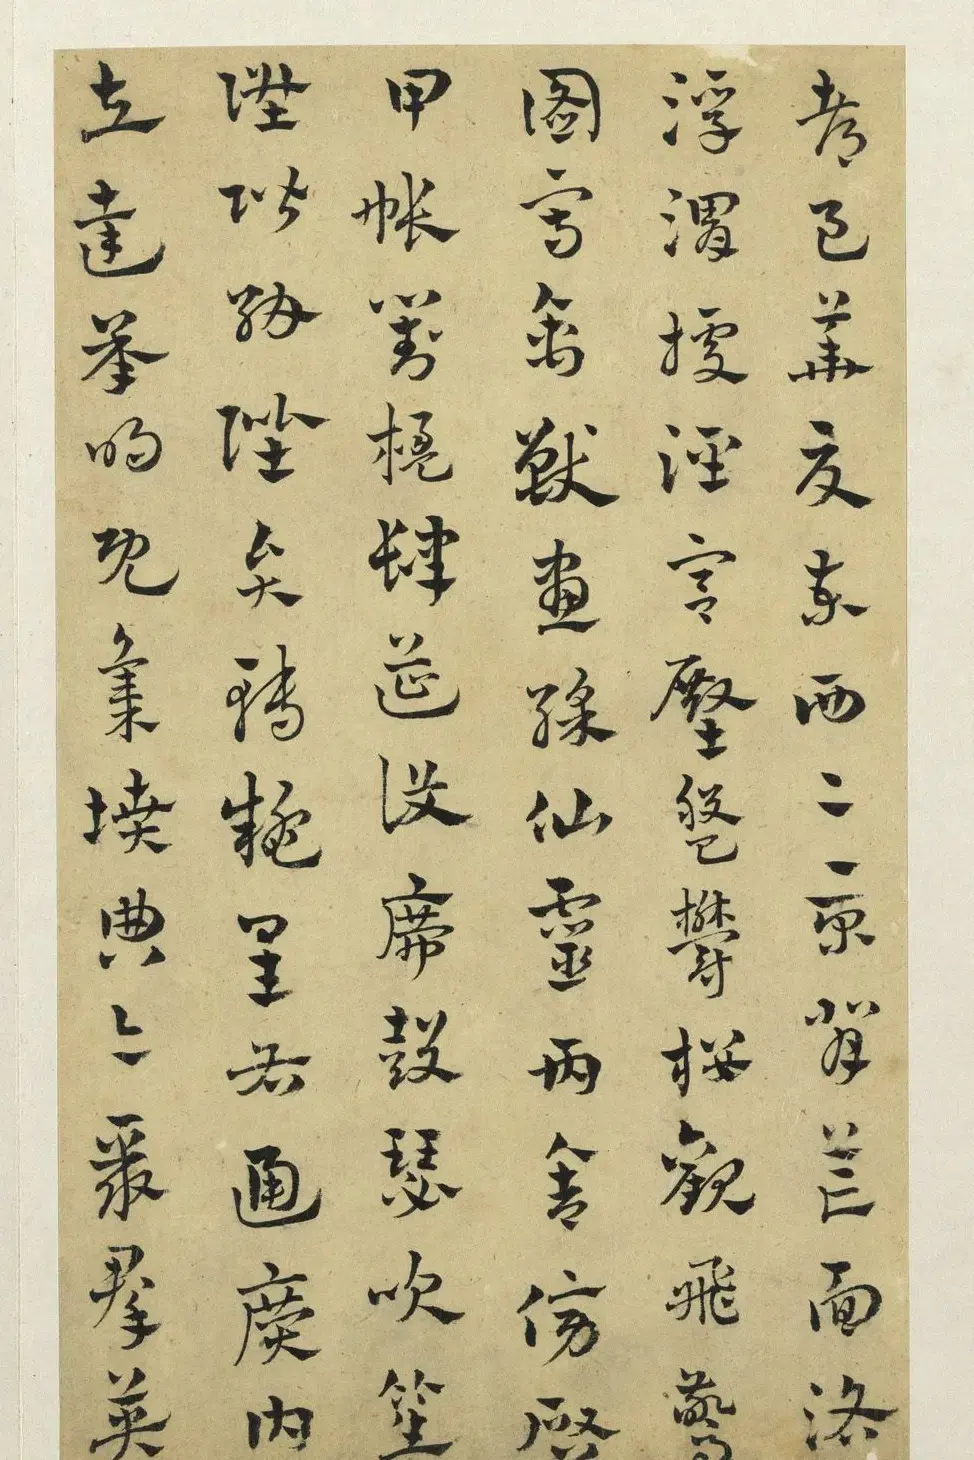 都邑華夏東西二京背芒面洛
浮渭據涇宫殿盤欝樓觀飛驚
圖寫禽獸畫綵仙靈丙舍傍啓
甲帳對楹肆筵設席鼓瑟吹笙
陞階納陛弁轉疑星右通廣内
左達承明既集墳典亦聚群英